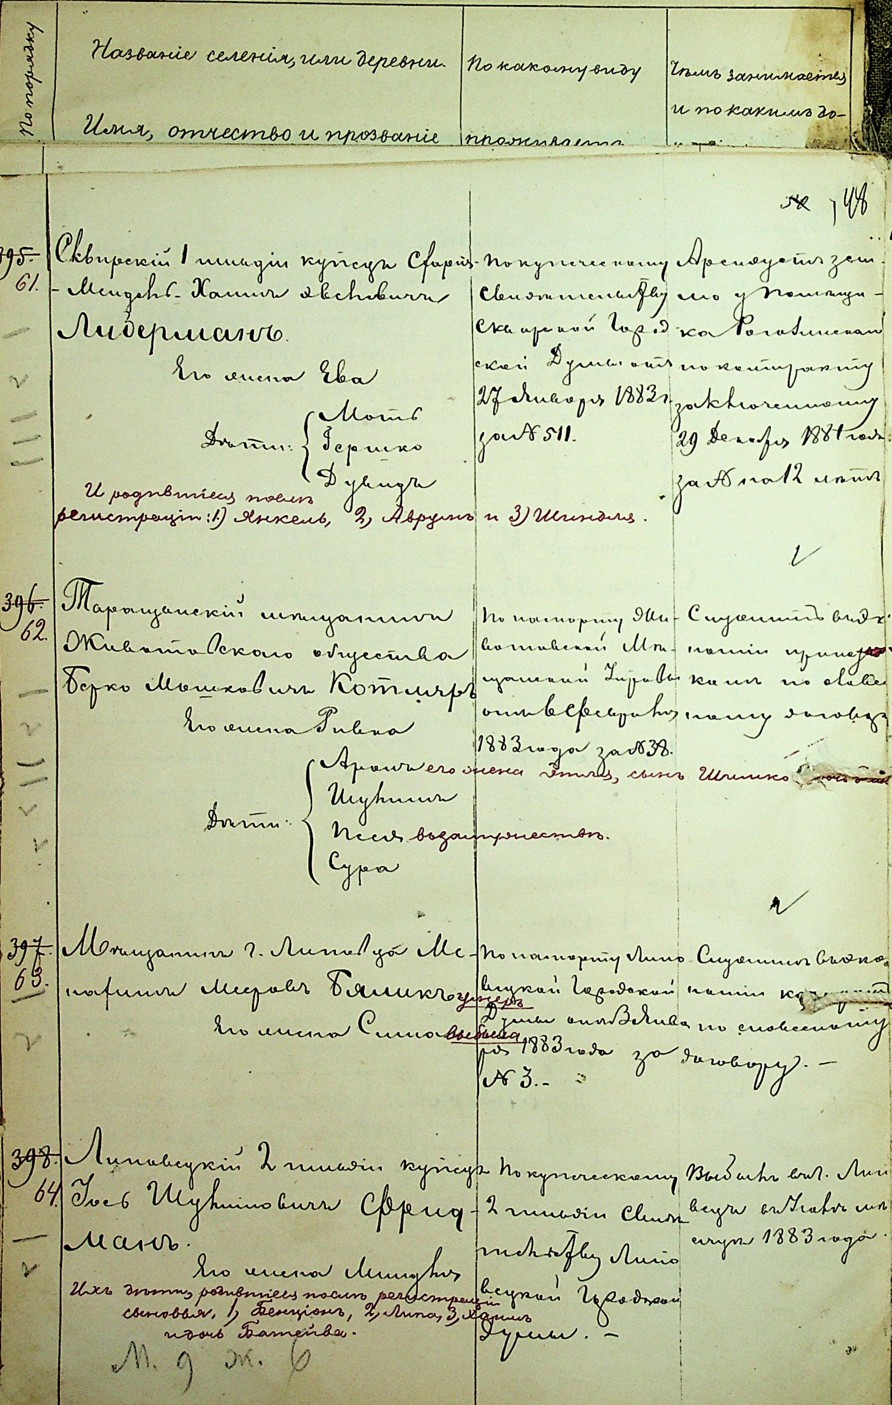 По порядку
Названіе селенія, или деревни.
Имя, отчество и прозваніе
По какому виду
проживаетъ
Чѣмъ занимается
и по какимъ до-
48
395.
61.
Сквирскій 1 гильдіи купецъ
Хаимъ
Лидерманъ.
Его жена Ева
Дѣти:
Мотъ
Гершко
Дувидъ
И родившіеся послѣ
регистраціи: 1) Янкель, 2) Аврумъ и 3)
По купеческому
свидѣтельству
Сквирской Город
ской Думы отъ
27 Января 1883 г.
за № 511.
Арендуетъ зем-
лю у помѣщи-
ка
по контракту
заключенному
29 Декабря 1881 года
за № на 12 лѣтъ
396.
62.
Таращанскій мѣщанинъ
Животовскаго общества
Берко Мошковичъ Котляръ
Его жена Ривка
Дѣти:
Аронъ его жена сынъ Шлимко
Шулимъ
Песя въ замужествѣ.
Сура
По паспорту Жи-
вотовской Мѣ-
щанской Управы
отъ Февраля
1883 года за № 38.
Служитъ въ эко-
номіи
по словес
ному договору
397.
63.
Мѣщанинъ г. Липовца Ме-
Мееровъ Бяликъ умеръ
Его жена Сима выбыла
По паспорту Липо
вецкой Городской
Думы отъ Янва
ря 1883 года за
№ 3.-
Служитъ въ эко-
номіи
по словесному
договору. —
398.
64.
Липовецкій 2 гильдіи купецъ
Іосъ Шулимовичъ Фрид-
манъ.
Его жена
Ихъ дѣти, родившіеся послѣ регистраціи
сыновья, 1) Бенціонъ, 2) Липа, 3) Хаимъ
и дочь Батейва.
М. 9 Ж. 6
По купеческому
2 гильдіи свидѣ
тельству Липо
вецкой Городской
Думы. —
Выбылъ въ г. Лип
вецъ въ Іюлѣ мѣ
сяцѣ 1883 года.